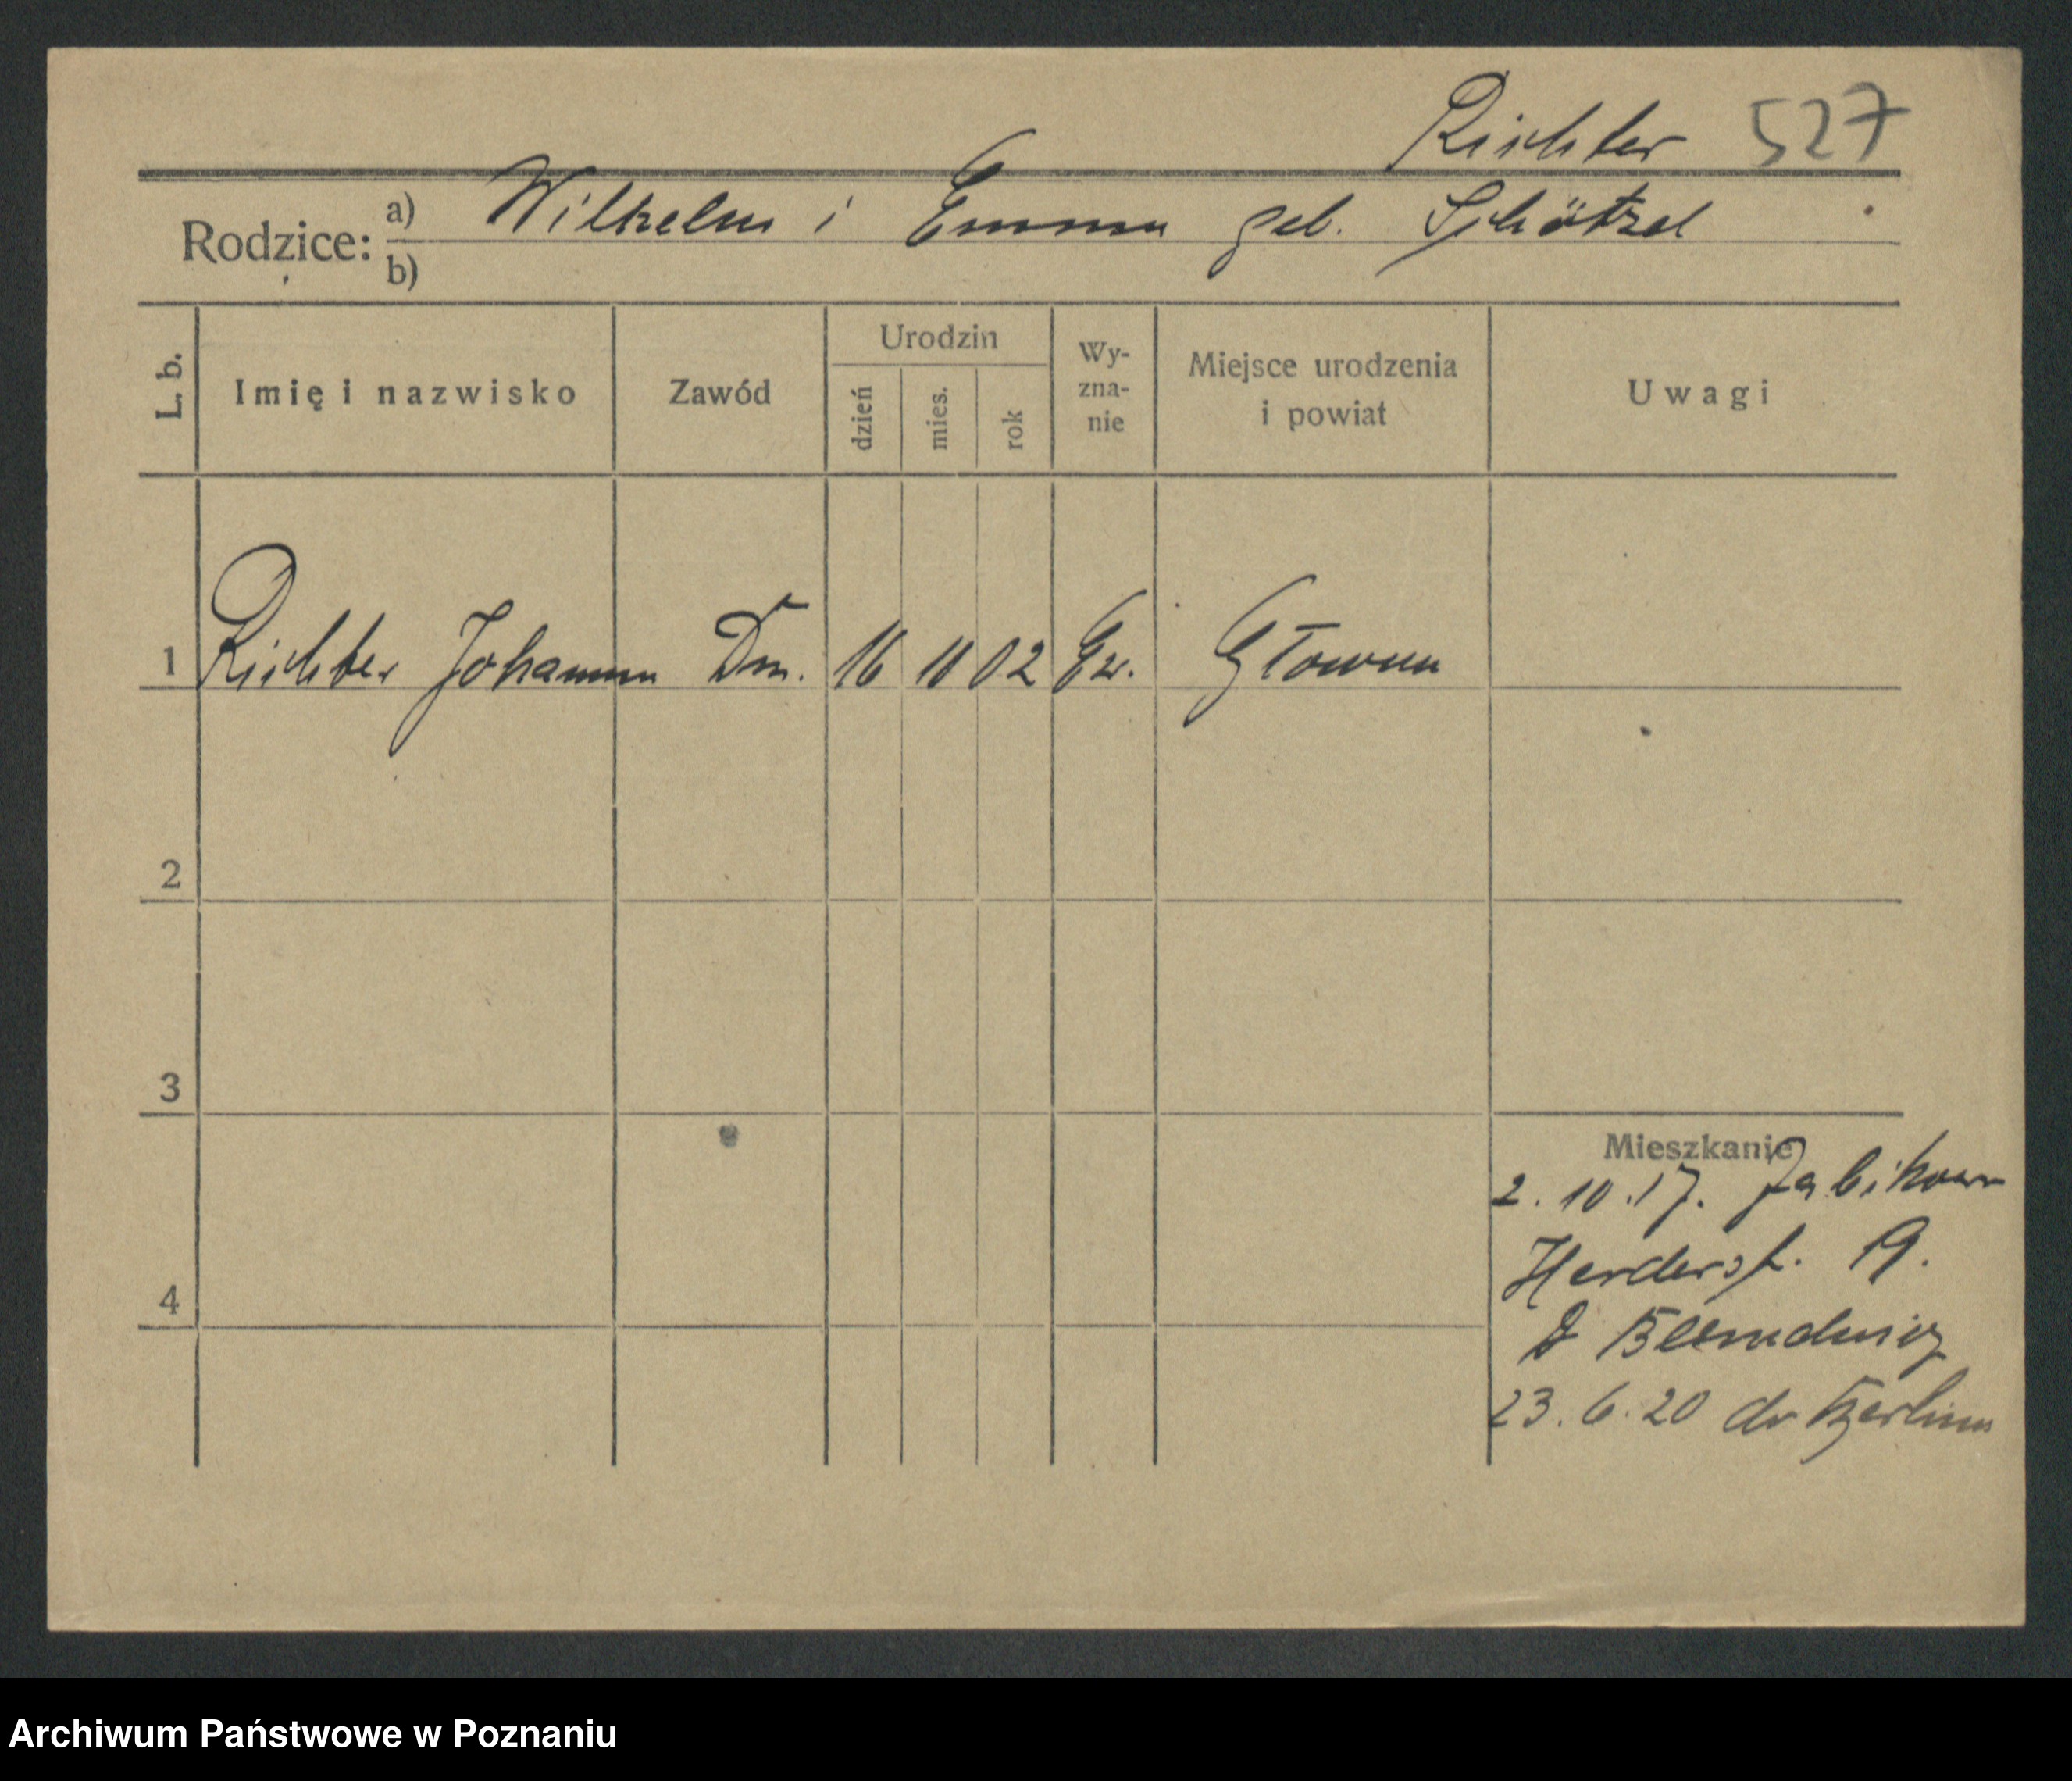 Richter 527
Rodzice: a) Wilhelm i Emma geb. Schötzel
b)
L. b. Imię i nazwisko Zawód Urodzin dzień mies. rok Wyznanie Miejsce urodzenia i powiat Uwagi
1 Richter Johanna Dm. 16 11 02 Ew. Główna
2
3
4
Mieszkanie
2. 10. 17. Żabikowo
Herderst. 19.
23. 6. 20 do Berlina
Archiwum Państwowe w Poznaniu